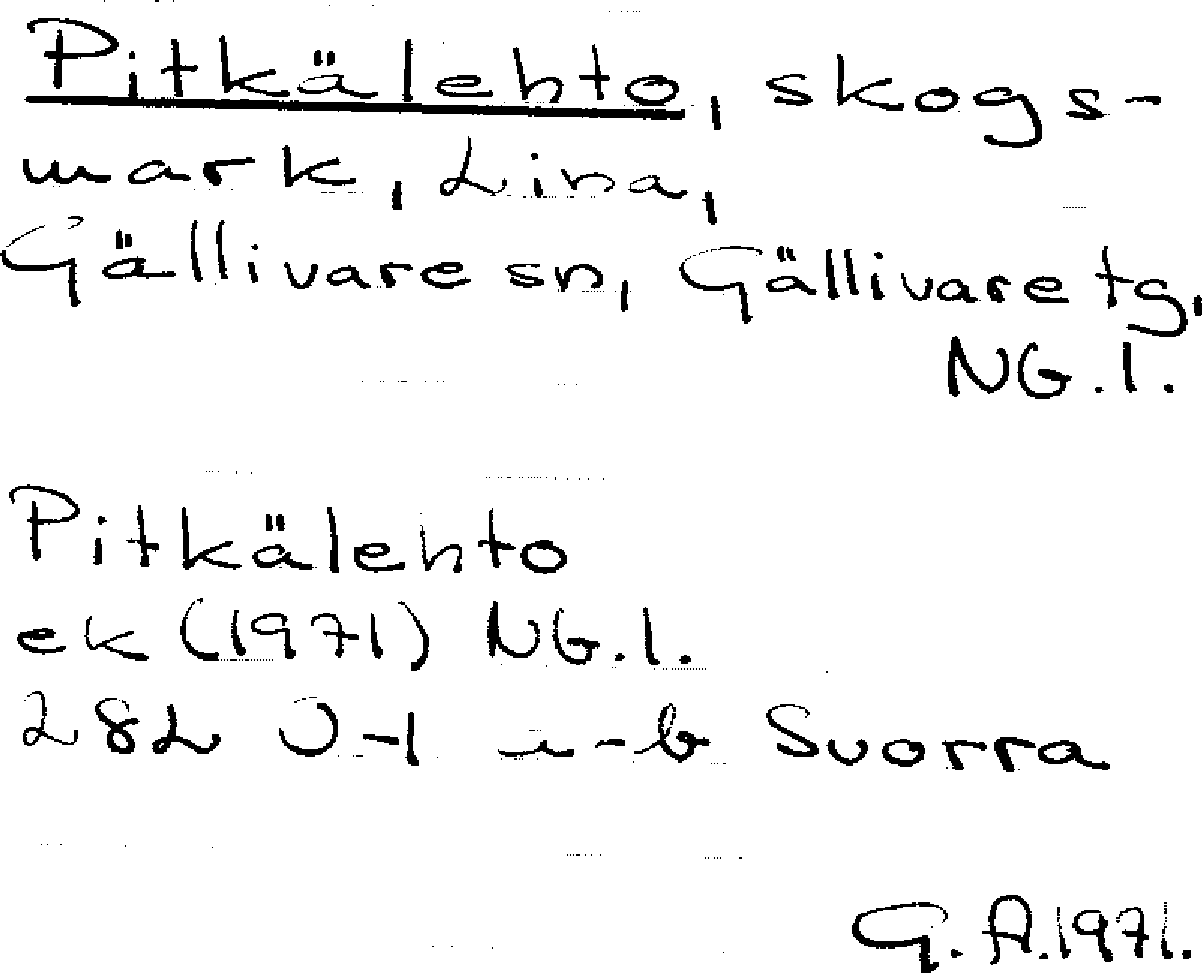 Pitkälehto, skogs-
mark, Lina,
Gällivare sn, Gällivare tg,
NG.l.
Pitkälehto
ek (1971) NG.l.
282 J-1 a-b Suorra
G.A.1971.